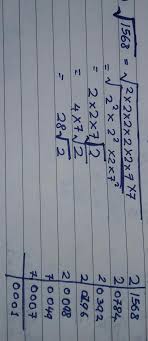 √1568 = √2×2×2×2×2×7×7
= √2² × 2² × 2 × 7²
= 2 × 2 × 7 √2
= 4 × 7 √2
= 28 √2
2 1568
2 0784
2 0392
2 0196
2 0098
7 0049
7 0007
0001